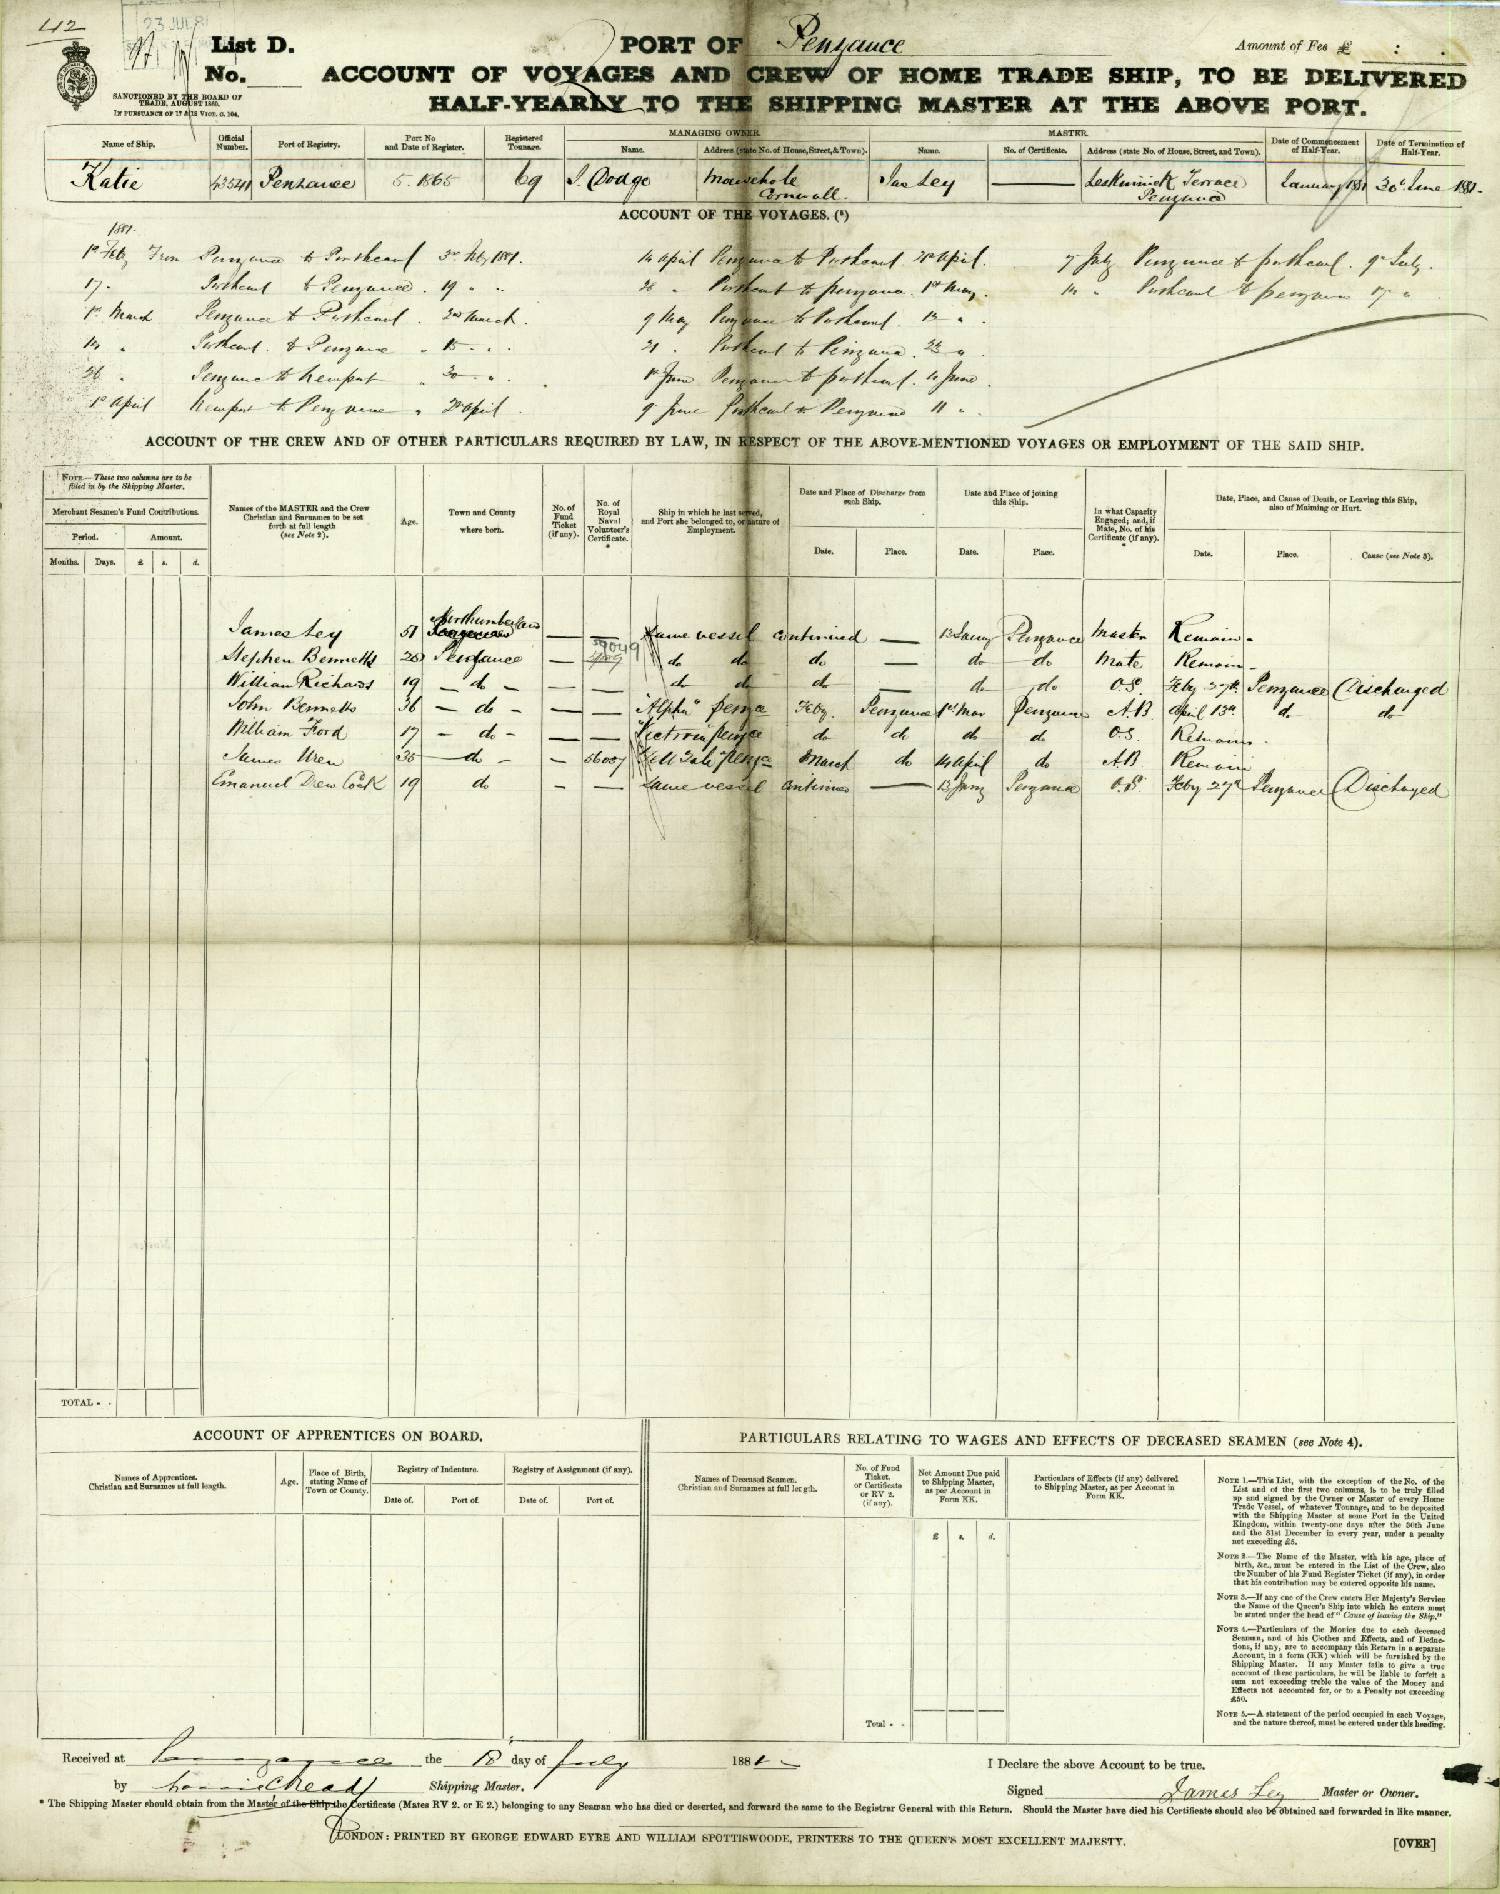 42
23 JUL 81
List D.
PORT OF Penzance
Amount of Fee £ : .
No.
ACCOUNT OF VOYAGES AND CREW OF HOME TRADE SHIP, TO BE DELIVERED
HALF-YEARLY TO THE SHIPPING MASTER AT THE ABOVE PORT.
SANCTIONED BY THE BOARD OF
TRADE, AUGUST 1880.
IN PURSUANCE OF 17 & 18 VICT. C. 104.
Name of Ship. Official Number. Port of Registry. Port No and Date of Register. Registered Tonnage. MANAGING OWNER. Name. Address (state No. of House, Street, & Town). MASTER. Name. No. of Certificate. Address (state No. of House, Street, and Town). Date of Commencement of Half-Year. Date of Termination of Half-Year.
Katie 43541 Penzance 5. 1865 69 J. Dodge Mousehole Cornwall. Jas Ley — Leskinnick Terrace Penzance January 1881 30th June 1881.
ACCOUNT OF THE VOYAGES. (¹)
1881.
1st Feby From Penzance to Porthcawl 3rd Feby 1881.
17 " Porthcawl to Penzance. 19 " "
1st March Penzance to Porthcawl. 3rd March.
14 " Porthcawl to Penzance " 15 " "
26 " Penzance to Newport " 30 " "
1st April Newport to Penzance " 2nd April.
14 April Penzance to Porthcawl 21st April.
26 " Porthcawl to Penzance. 1st May.
9 May Penzance to Porthcawl. 12 " .
21 " Porthcawl to Penzance. 22 " .
1st June Penzance to Porthcawl. 4 June.
9 June Porthcawl to Penzance 11 " .
7 July Penzance to Porthcawl. 9th July.
14 " Porthcawl to Penzance 17 "
ACCOUNT OF THE CREW AND OF OTHER PARTICULARS REQUIRED BY LAW, IN RESPECT OF THE ABOVE-MENTIONED VOYAGES OR EMPLOYMENT OF THE SAID SHIP.
NOTE.—These two columns are to be filled in by the Shipping Master.
Merchant Seamen's Fund Contributions.
Period. Amount.
Months. Days. £ s. d.
Names of the MASTER and the Crew Christian and Surnames to be set forth at full length (see Note 2).
Age.
Town and County where born.
No. of Fund Ticket (if any).
No. of Royal Naval Volunteer's Certificate. *
Ship in which he last served, and Port she belonged to, or nature of Employment.
Date and Place of Discharge from such Ship.
Date. Place.
Date and Place of joining this Ship.
Date. Place.
In what Capacity Engaged; and, if Mate, No. of his Certificate (if any). *
Date, Place, and Cause of Death, or Leaving this Ship, also of Maiming or Hurt.
Date. Place. Cause (see Note 3).
James Ley 51 Northumberland — — Same vessel continued — 13 Jany Penzance Master Remain.
Stephen Bennetts 20 Penzance — 59049 do do do — do do Mate Remain.
William Richards 19 — do — — — do do do — do do O.S. Feby 27th Penzance Discharged
John Bennetts 36 — do — — — "Alpha" Penzce Feby. Penzance 1st Mar Penzance A.B April 13th do do
William Ford 17 — do — — — Victoria Penzce do do do do O.S. Remains.
James Wren 35 — do — — 56007 Penzce March do 14 April do A.B Remain
Emanuel Drew Cock 19 do — — Same vessel continues — 13 Jany Penzance O.S. Feby 27th Penzance Discharged
TOTAL - -
ACCOUNT OF APPRENTICES ON BOARD.
Names of Apprentices. Christian and Surnames at full length. Age. Place of Birth, stating Name of Town or County. Registry of Indenture. Date of. Port of. Registry of Assignment (if any). Date of. Port of.
PARTICULARS RELATING TO WAGES AND EFFECTS OF DECEASED SEAMEN (see Note 4).
Names of Deceased Seamen. Christian and Surnames at full length. No. of Fund Ticket, or Certificate or RV 2. (if any). Net Amount Due paid to Shipping Master, as per Account in Form KK. £ s. d. Particulars of Effects (if any) delivered to Shipping Master, as per Account in Form KK.
Total - -
NOTE 1.—This List, with the exception of the No. of the
List and of the first two columns, is to be truly filled
up and signed by the Owner or Master of every Home
Trade Vessel, of whatever Tonnage, and to be deposited
with the Shipping Master at some Port in the United
Kingdom, within twenty-one days after the 30th June
and the 31st December in every year, under a penalty
not exceeding £5.
NOTE 2.—The Name of the Master, with his age, place of
birth, &c., must be entered in the List of the Crew, also
the Number of his Fund Register Ticket (if any), in order
that his contribution may be entered opposite his name.
NOTE 3.—If any one of the Crew enters Her Majesty's Service
the Name of the Queen's Ship into which he enters must
be stated under the head of "Cause of leaving the Ship."
NOTE 4.—Particulars of the Monies due to each deceased
Seaman, and of his Clothes and Effects, and of Deduc-
tions, if any, are to accompany this Return in a separate
Account, in a form (KK) which will be furnished by the
Shipping Master. If any Master fails to give a true
account of these particulars, he will be liable to forfeit a
sum not exceeding treble the value of the Money and
Effects not accounted for, or to a Penalty not exceeding
£50.
NOTE 5.—A statement of the period occupied in each Voyage,
and the nature thereof, must be entered under this heading.
Received at Penzance the 18 day of July 1881
by Shipping Master.
I Declare the above Account to be true.
Signed James Ley Master or Owner.
* The Shipping Master should obtain from the Master of the Ship the Certificate (Mates RV 2. or E 2.) belonging to any Seaman who has died or deserted, and forward the same to the Registrar General with this Return. Should the Master have died his Certificate should also be obtained and forwarded in like manner.
LONDON: PRINTED BY GEORGE EDWARD EYRE AND WILLIAM SPOTTISWOODE, PRINTERS TO THE QUEEN'S MOST EXCELLENT MAJESTY.
[OVER]